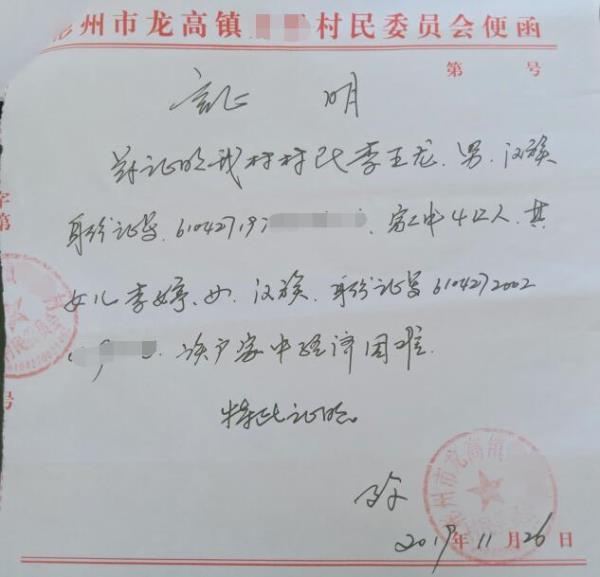 州市龙高镇 村民委员会便函
第 号
证 明
兹证明我村村民李玉龙、男、汉族
身份证号、61042719 、家中4口人、其
女儿李婷、女、汉族、身份证号6104272002
该户家中经济困难.
特此证明。
2019年11月26日
字第
号
州市龙高镇